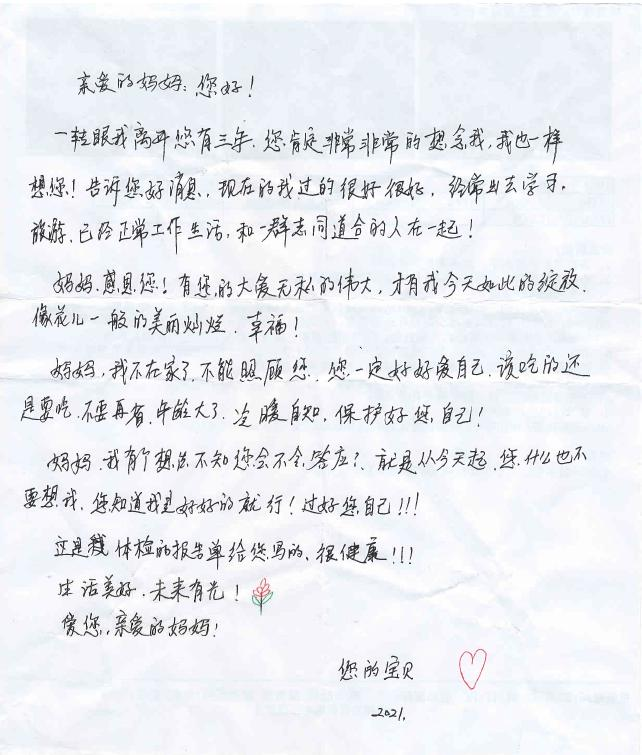 亲爱的妈妈：您好！
一转眼我离开您有三年．您肯定非常非常的想念我，我也一样
想您！告诉您好消息，现在的我过的很好很好，经常出去学习．
旅游．已经正常工作生活，和一群志同道合的人在一起！
妈妈．感恩您！有您的大爱无私的伟大，才有我今天如此的绽放．
像花儿一般的美丽灿烂．幸福！
妈妈，我不在家了．不能照顾您．您一定好好爱自己．该吃的还
是要吃．不要再省．年龄大了．冷暖自知，保护好您自己！
妈妈．我有个想法不知您会不会答应？就是从今天起．您什么也不
要想我．您知道我是好好的就行！过好您自己！！！
这是我体检的报告单给您写的．很健康！！！
生活美好．未来有光！
爱您，亲爱的妈妈！
您的宝贝
2021.